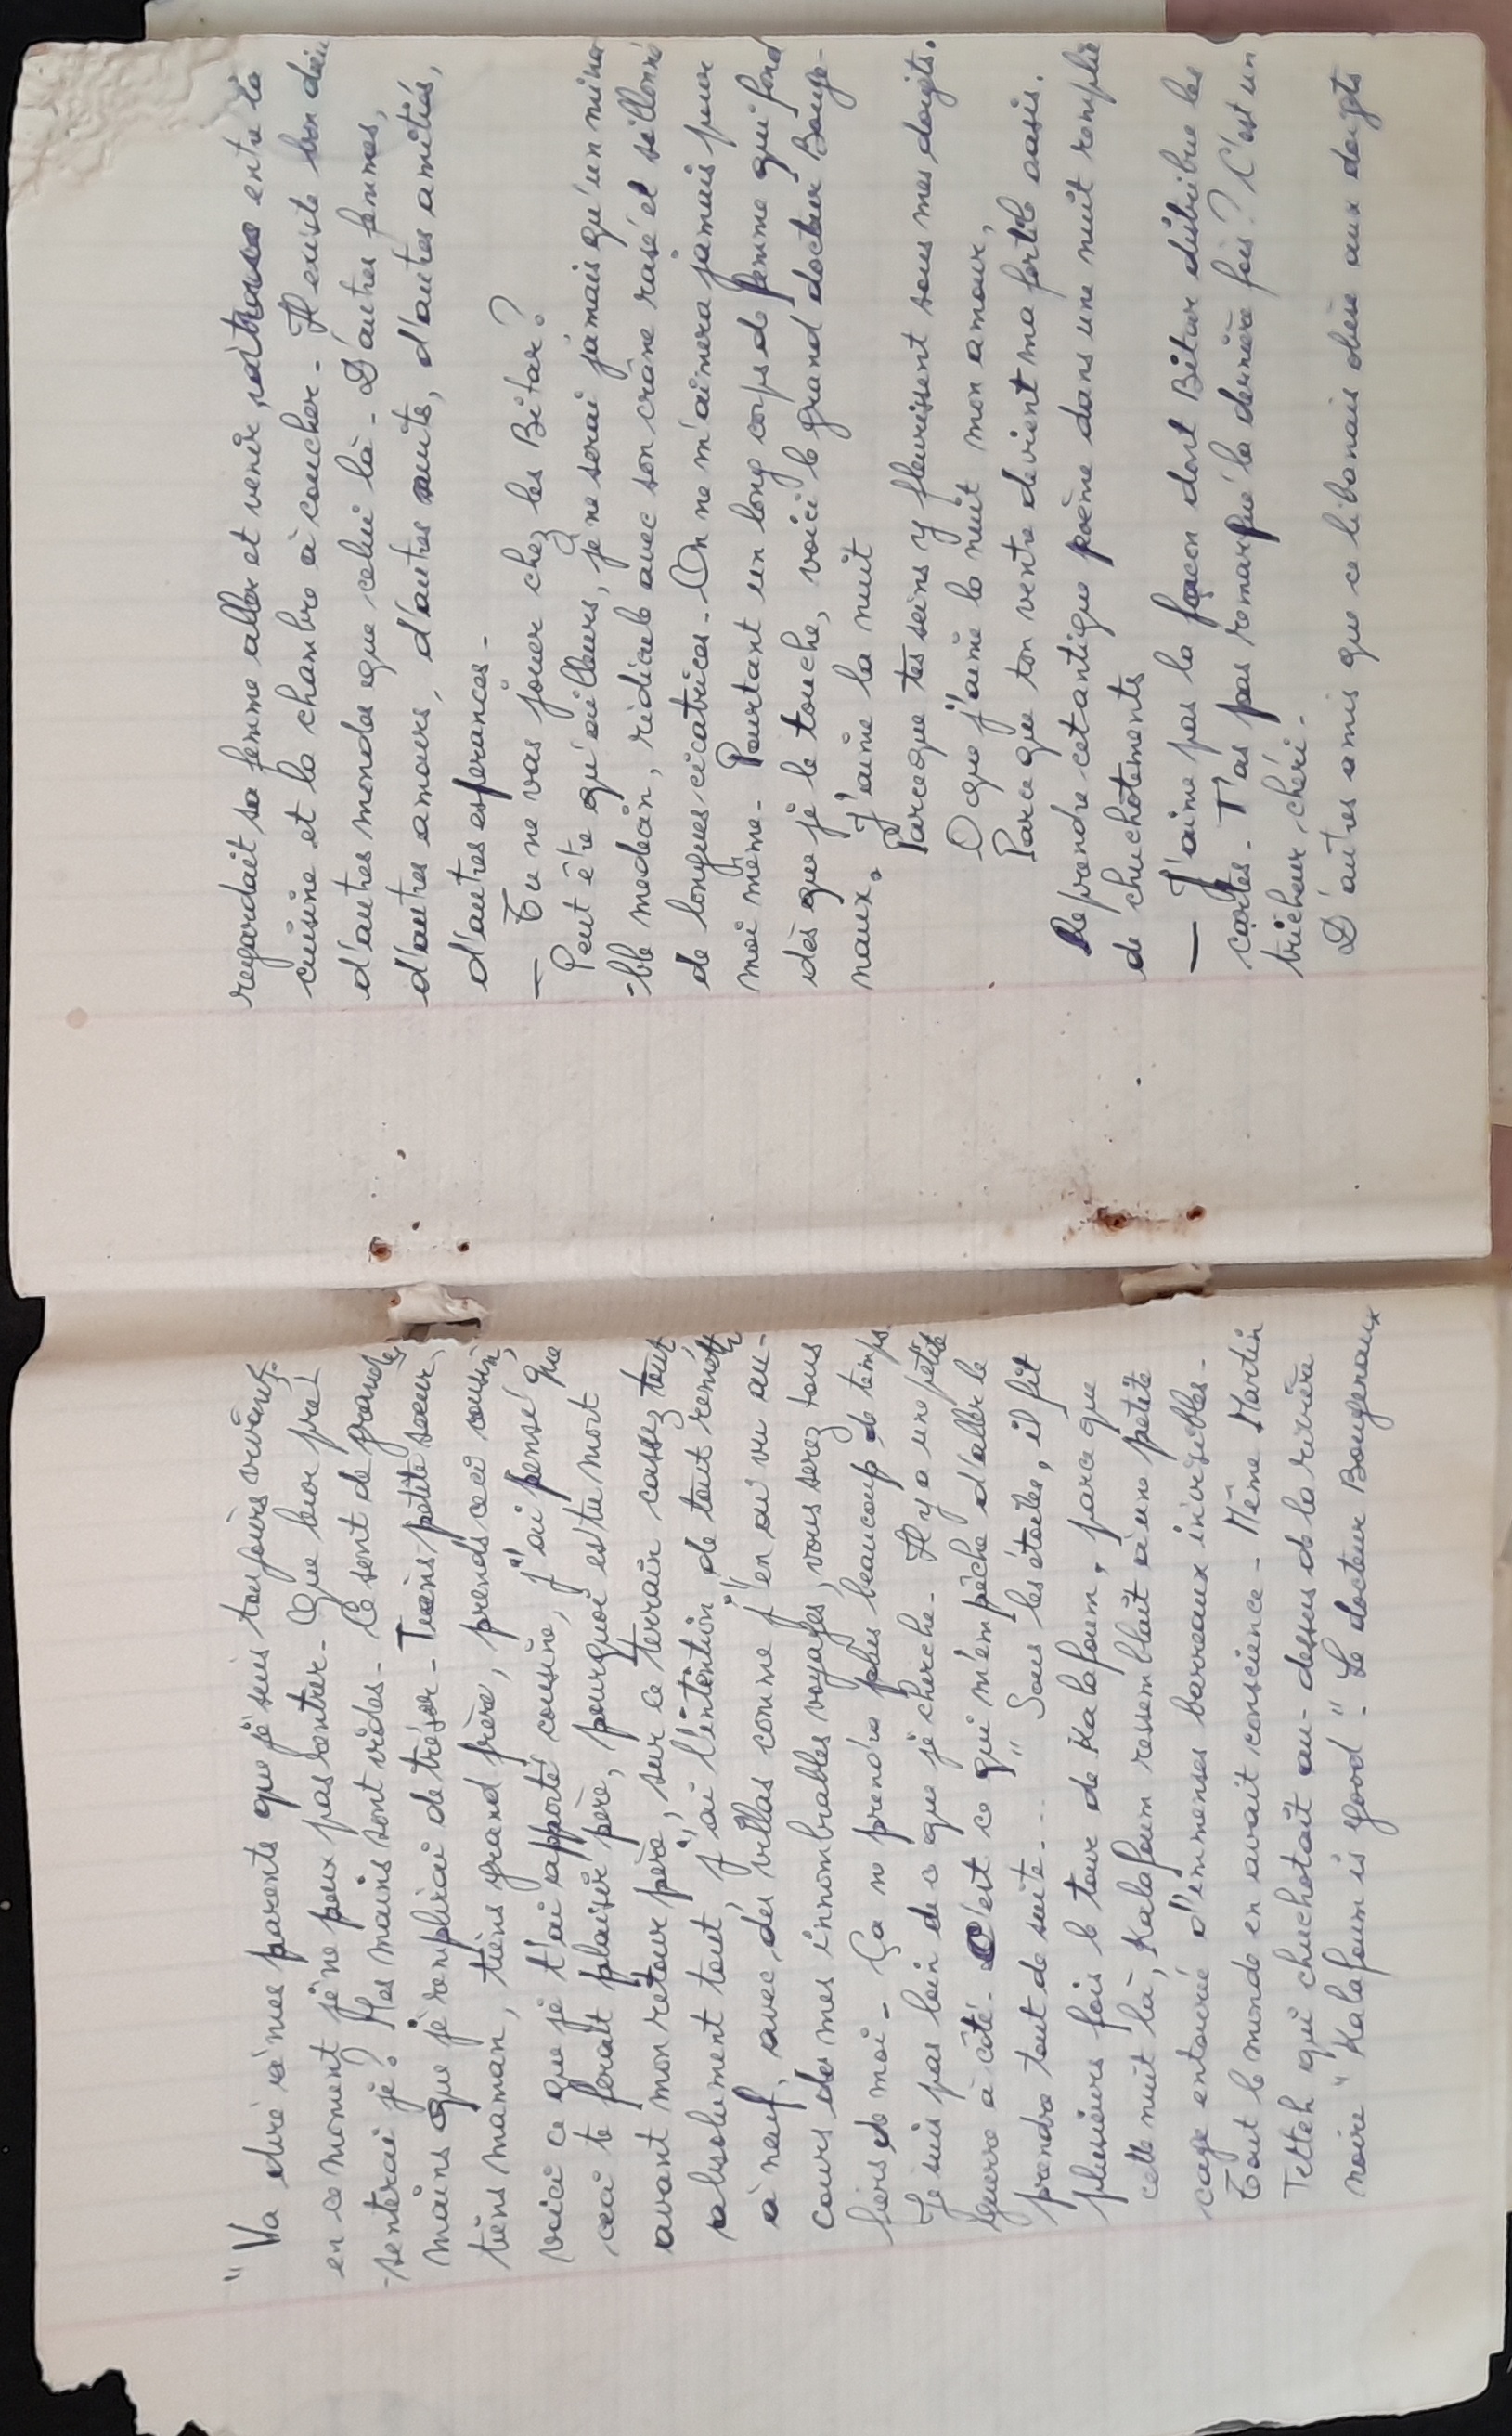 "Va dire à mes parents que je suis toujours vivant.
en ce moment je ne peux pas rentrer. Que leur pré
-senterai je? Mes mains sont vides. Ce sont de grandes
mains que je remplirai de trésor. Tiens petite soeur,
tiens maman, tiens grand frère, prends ceci cousin,
voici ce que je t'ai apporté cousine, j'ai pensé que
ceci te ferait plaisir père, pourquoi es tu mort
avant mon retour père, sur ce terrain cassez tout
absolument tout, j'ai l'intention de tout remettr
à neuf, avec des villas comme j'en ai vu au-
cours de mes innombrables voyages, vous serez tous
fiers de moi - Ça ne prendra plus beaucoup de temps.
Je suis pas loin de ce que je cherche - Il y a une petite
guerre à côté. C'est ce qui m'empêche d'aller le
prendre tout de suite... " Sous les étoiles, il fit
plusieurs fois le tour de Kalafoum, parce que
cette nuit là, Kalafoum ressemblait à une petite
cage entourée d'immenses barreaux invisibles -
Tout le monde en avait conscience - Même Martin
Tetteh qui chuchotait au-dessus de la rivière
noire "Kalafoum is good". Le docteur Bougenaux
regardait sa femme aller et venir entre la
cuisine et la chambre à coucher - Il existe bon dieu
d'autres mondes que celui là - D'autres femmes,
d'autres amours, d'autres nuits, d'autres amitiés,
d'autres esperances -
— Tu ne vas jouer chez les Bitar?
Peut être qu'ailleurs, je ne serai jamais qu'un miséra
-ble medecin, ridicule avec son crâne rasé et sillonné
de longues cicatrices - On ne m'aimera jamais pour
moi même - Pourtant un long corps de femme qui fond
dès que je le touche, voici le grand docteur Bouge-
naux. J'aime la nuit
Parceque tes seins y fleurissent sous mes doigts.
O que j'aime la nuit mon amour,
Parce que ton ventre devient ma fertile oasis.
Reprendre cet antique poème dans une nuit remplie
de chuchotements
— J'aime pas la façon dont Bitar distribue les
cartes - T'as pas remarqué la dernière fois? C'est un
tricheur, chéri -
D'autres amis que ce libanais obèse aux doigts